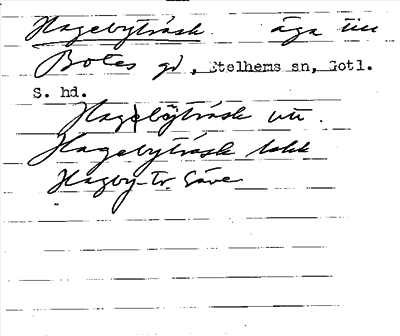 Hagebyträsk. äga till
Botes gd, Etelhems sn, Gotl.
S. hd.
Hagebyträsk utt.
Hagebyträsk lokk
Hagby-tr. Säve